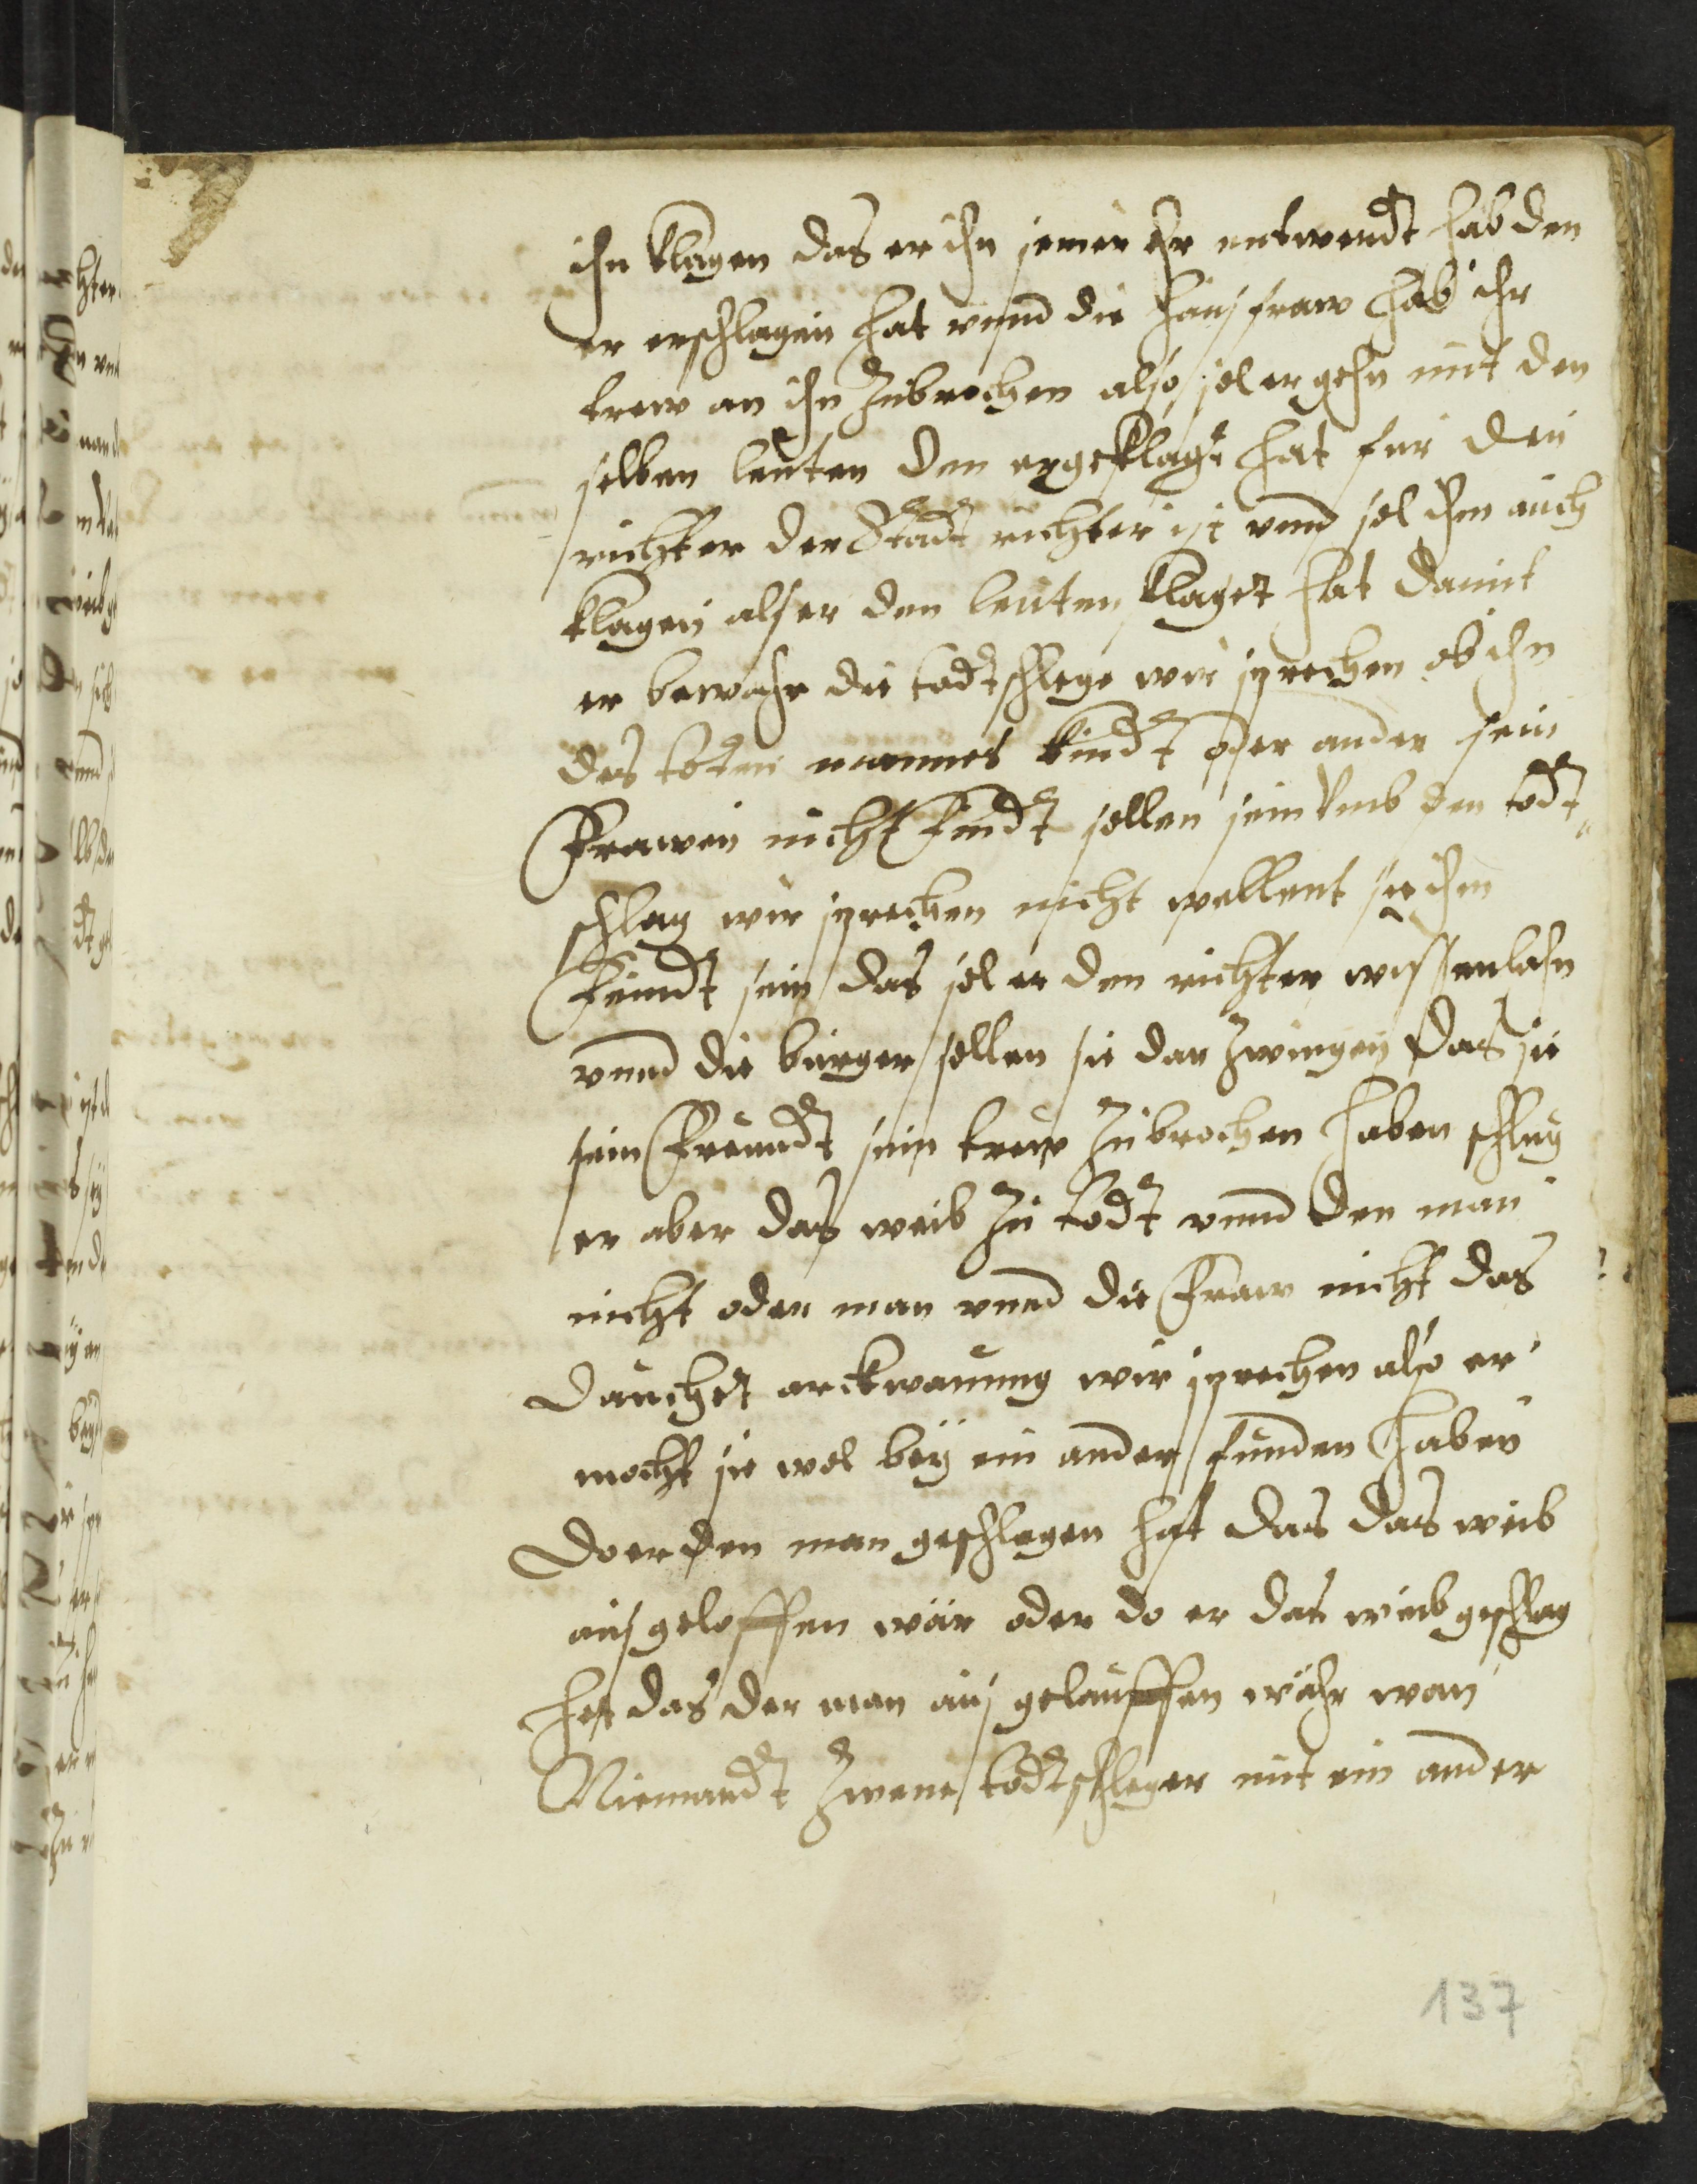 ihn klagen das er ihn seiner ehr entwendt hab den
er erschlagen hat vnnd die hausfraw hab ihr
trew an ihn zubrochen also sol er gehn mit den
selben leuten den er geklagt hat fur den
richter der Stadt richter ist vnnd sol ihm auch
klagen als er den leuten klaget hat damit
er bewahr die todtschlege wir sprechen ob ihn
des toten mannes kindt oder ander sein
Frawen nicht Findt sollen sein vmb den todt
schlag wir sprechen nicht wellent sie ihm
Feindt sein das sol er den richter wissen lahn
vnnd die burger sollen sie dar zwingen das sie
sein Freundt sein trew zubrochen haben schlug
er aber das weib zu todt vnnd den man
nicht oder man vnnd die Fraw nicht das
dauchet arckwanung wir sprechen also er
mocht sie wol bey ein ander funden haben
do er den man geschlagen hat das das weib
aus geloffen wär oder do er das weib geschlag
het das der man aus gelauffen währ wan
Niemandt zwene todtschleger mit ein ander
137